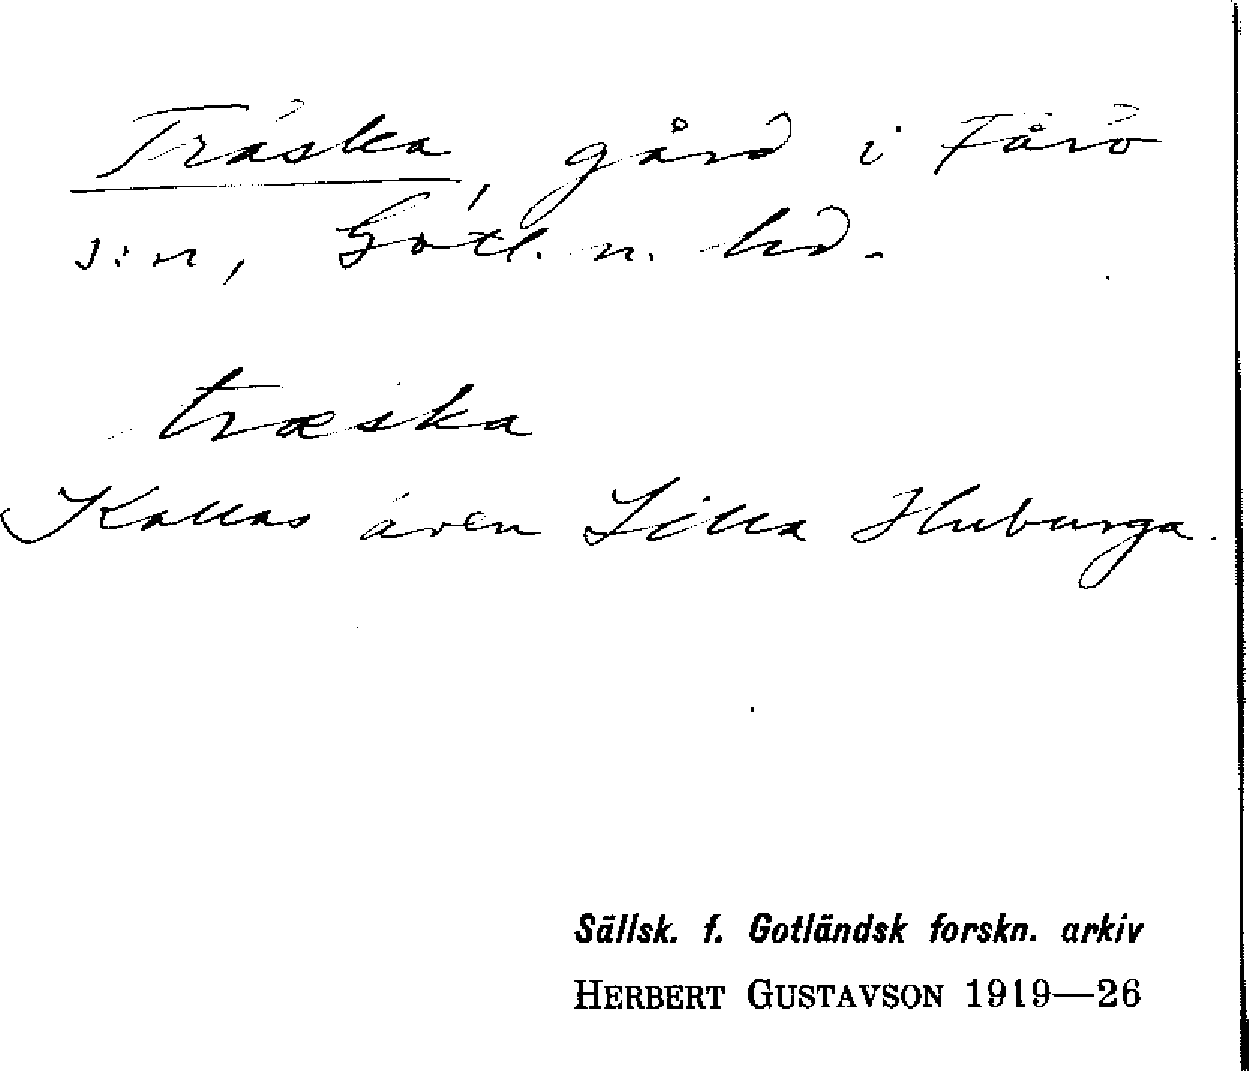 Träska, gård i Fårö
s:n, Gotl. n. hd.
træska
Kallas även Lilla Huburga.
Sällsk. f. Gotländsk forskn. arkiv
HERBERT GUSTAVSON 1919—26